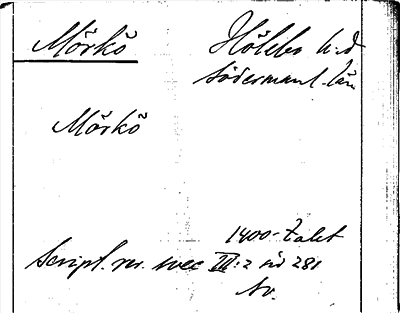 Mörkö Hölebo h.d
Södermanl. län
Mörkö
1400-talet
Script. rer. svec III:2 sid 281
Av.